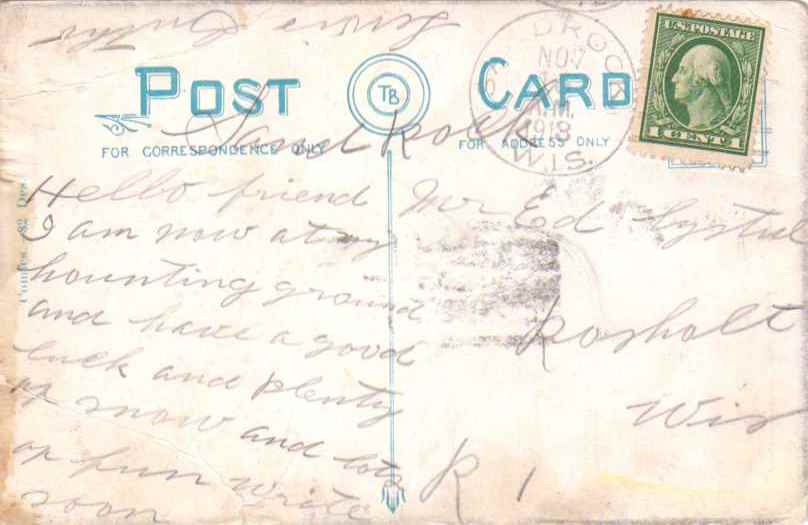 POST CARD
TB
FOR CORRESPONDENCE ONLY
FOR ADDRESS ONLY
NOV
A.M.
1918
WIS.
U.S. POSTAGE
1 CENT 1
Sand Rock
Hello friend
I am now at my
hounting ground
and have a good
luck and plenty
of snow and lots
of fun write
soon
Mr Ed
Rosholt
Wis
R 1